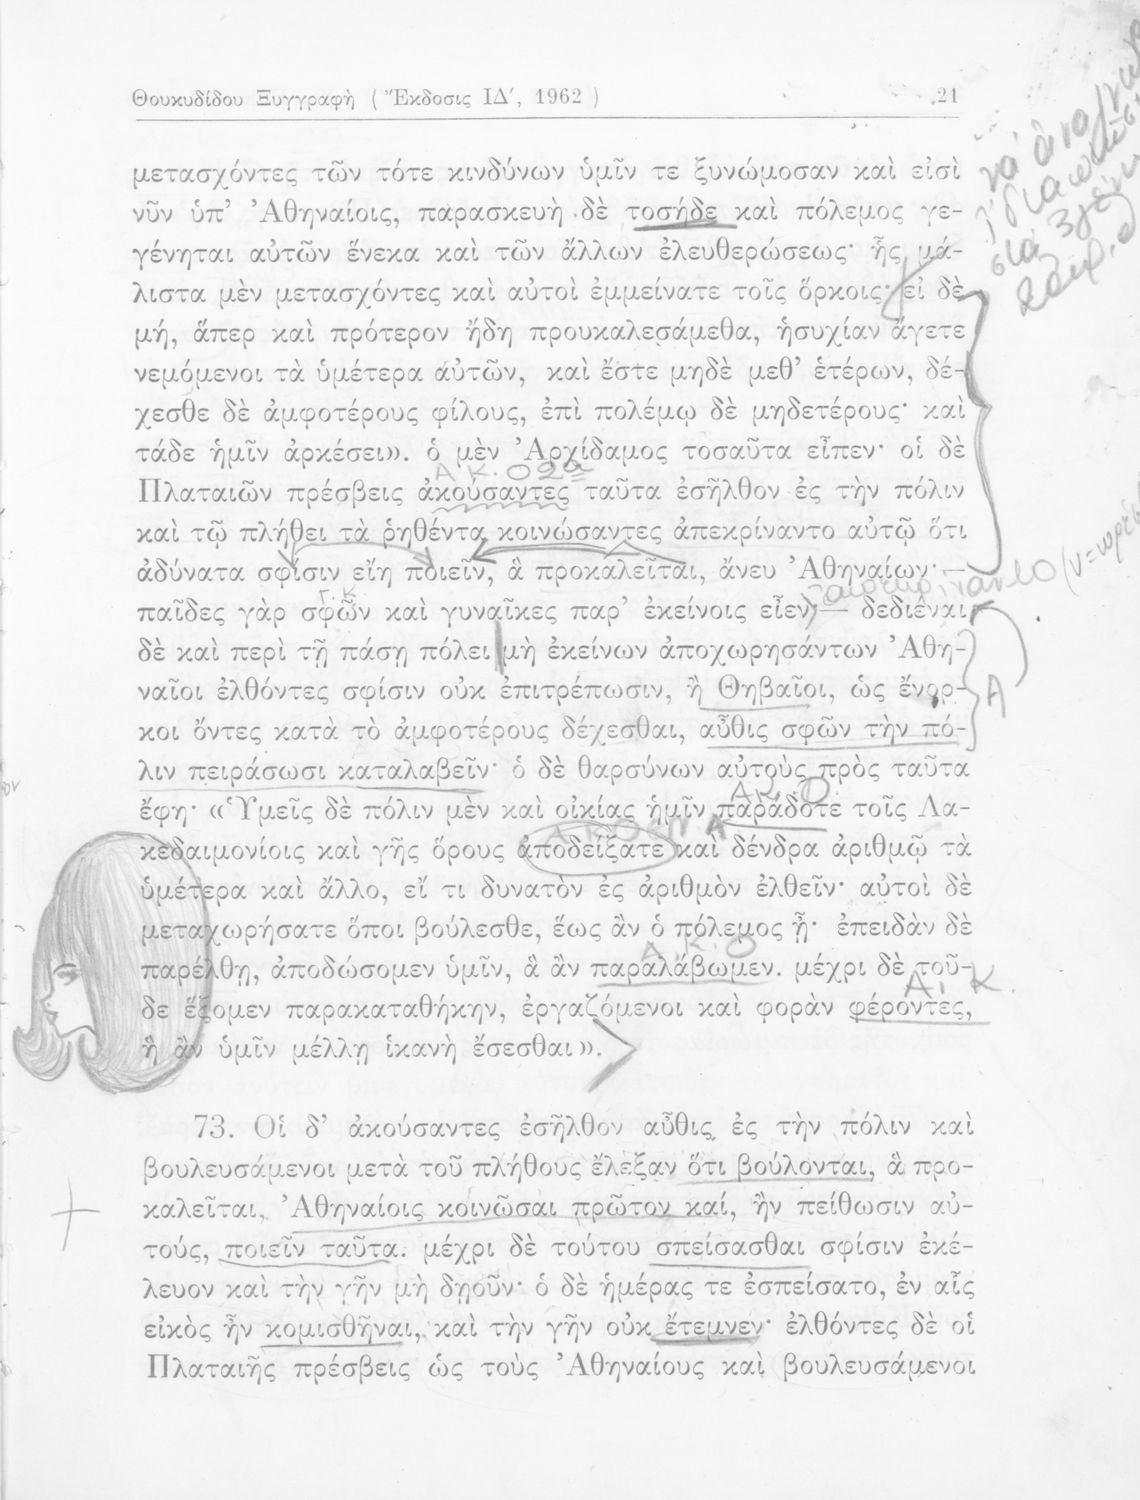 Θουκυδίδου Ξυγγραφὴ ( Ἔκδοσις ΙΔ′, 1962 ) 21
μετασχόντες τῶν τότε κινδύνων ὑμῖν τε ξυνώμοσαν καὶ εἰσὶ
νῦν ὑπ’ Ἀθηναίοις, παρασκευὴ δὲ τοσήδε καὶ πόλεμος γε-
γένηται αὐτῶν ἕνεκα καὶ τῶν ἄλλων ἐλευθερώσεως· ἧς μά-
λιστα μὲν μετασχόντες καὶ αὐτοὶ ἐμμείνατε τοῖς ὅρκοις· εἰ δὲ
μή, ἅπερ καὶ πρότερον ἤδη προυκαλεσάμεθα, ἡσυχίαν ἄγετε
νεμόμενοι τὰ ὑμέτερα αὐτῶν, καὶ ἔστε μηδὲ μεθ’ ἑτέρων, δέ-
χεσθε δὲ ἀμφοτέρους φίλους, ἐπὶ πολέμῳ δὲ μηδετέρους· καὶ
τάδε ἡμῖν ἀρκέσει». ὁ μὲν Ἀρχίδαμος τοσαῦτα εἶπεν· οἱ δὲ
Πλαταιῶν πρέσβεις ἀκούσαντες ταῦτα ἐσῆλθον ἐς τὴν πόλιν
καὶ τῷ πλήθει τὰ ῥηθέντα κοινώσαντες ἀπεκρίναντο αὐτῷ ὅτι
ἀδύνατα σφίσιν εἴη ποιεῖν, ἃ προκαλεῖται, ἄνευ Ἀθηναίων·—
παῖδες γὰρ σφῶν καὶ γυναῖκες παρ’ ἐκείνοις εἶεν,— δεδιέναι
δὲ καὶ περὶ τῇ πάσῃ πόλει μὴ ἐκείνων ἀποχωρησάντων Ἀθη-
ναῖοι ἐλθόντες σφίσιν οὐκ ἐπιτρέπωσιν, ἢ Θηβαῖοι, ὡς ἔνορ-
κοι ὄντες κατὰ τὸ ἀμφοτέρους δέχεσθαι, αὖθις σφῶν τὴν πό-
λιν πειράσωσι καταλαβεῖν· ὁ δὲ θαρσύνων αὐτοὺς πρὸς ταῦτα
ΑΚ.Ο
ἔφη· «Ὑμεῖς δὲ πόλιν μὲν καὶ οἰκίας ἡμῖν παράδοτε τοῖς Λα-
κεδαιμονίοις καὶ γῆς ὅρους ἀποδείξατε καὶ δένδρα ἀριθμῷ τὰ
ὑμέτερα καὶ ἄλλο, εἴ τι δυνατὸν ἐς ἀριθμὸν ἐλθεῖν· αὐτοὶ δὲ
μεταχωρήσατε ὅποι βούλεσθε, ἕως ἂν ὁ πόλεμος ᾖ· ἐπειδὰν δὲ
Α.Κ.Ο
παρέλθῃ, ἀποδώσομεν ὑμῖν, ἃ ἂν παραλάβωμεν. μέχρι δὲ τοῦ-
Α.Κ.
δε ἕξομεν παρακαταθήκην, ἐργαζόμενοι καὶ φορὰν φέροντες,
ἣ ἂν ὑμῖν μέλλῃ ἱκανὴ ἔσεσθαι».
73. Οἱ δ’ ἀκούσαντες ἐσῆλθον αὖθις ἐς τὴν πόλιν καὶ
βουλευσάμενοι μετὰ τοῦ πλήθους ἔλεξαν ὅτι βούλονται, ἃ προ-
καλεῖται, Ἀθηναίοις κοινῶσαι πρῶτον καί, ἢν πείθωσιν αὐ-
τούς, ποιεῖν ταῦτα. μέχρι δὲ τούτου σπείσασθαι σφίσιν ἐκέ-
λευον καὶ τὴν γῆν μὴ δῃοῦν· ὁ δὲ ἡμέρας τε ἐσπείσατο, ἐν αἷς
εἰκὸς ἦν κομισθῆναι, καὶ τὴν γῆν οὐκ ἔτεμνεν· ἐλθόντες δὲ οἱ
Πλαταιῆς πρέσβεις ὡς τοὺς Ἀθηναίους καὶ βουλευσάμενοι